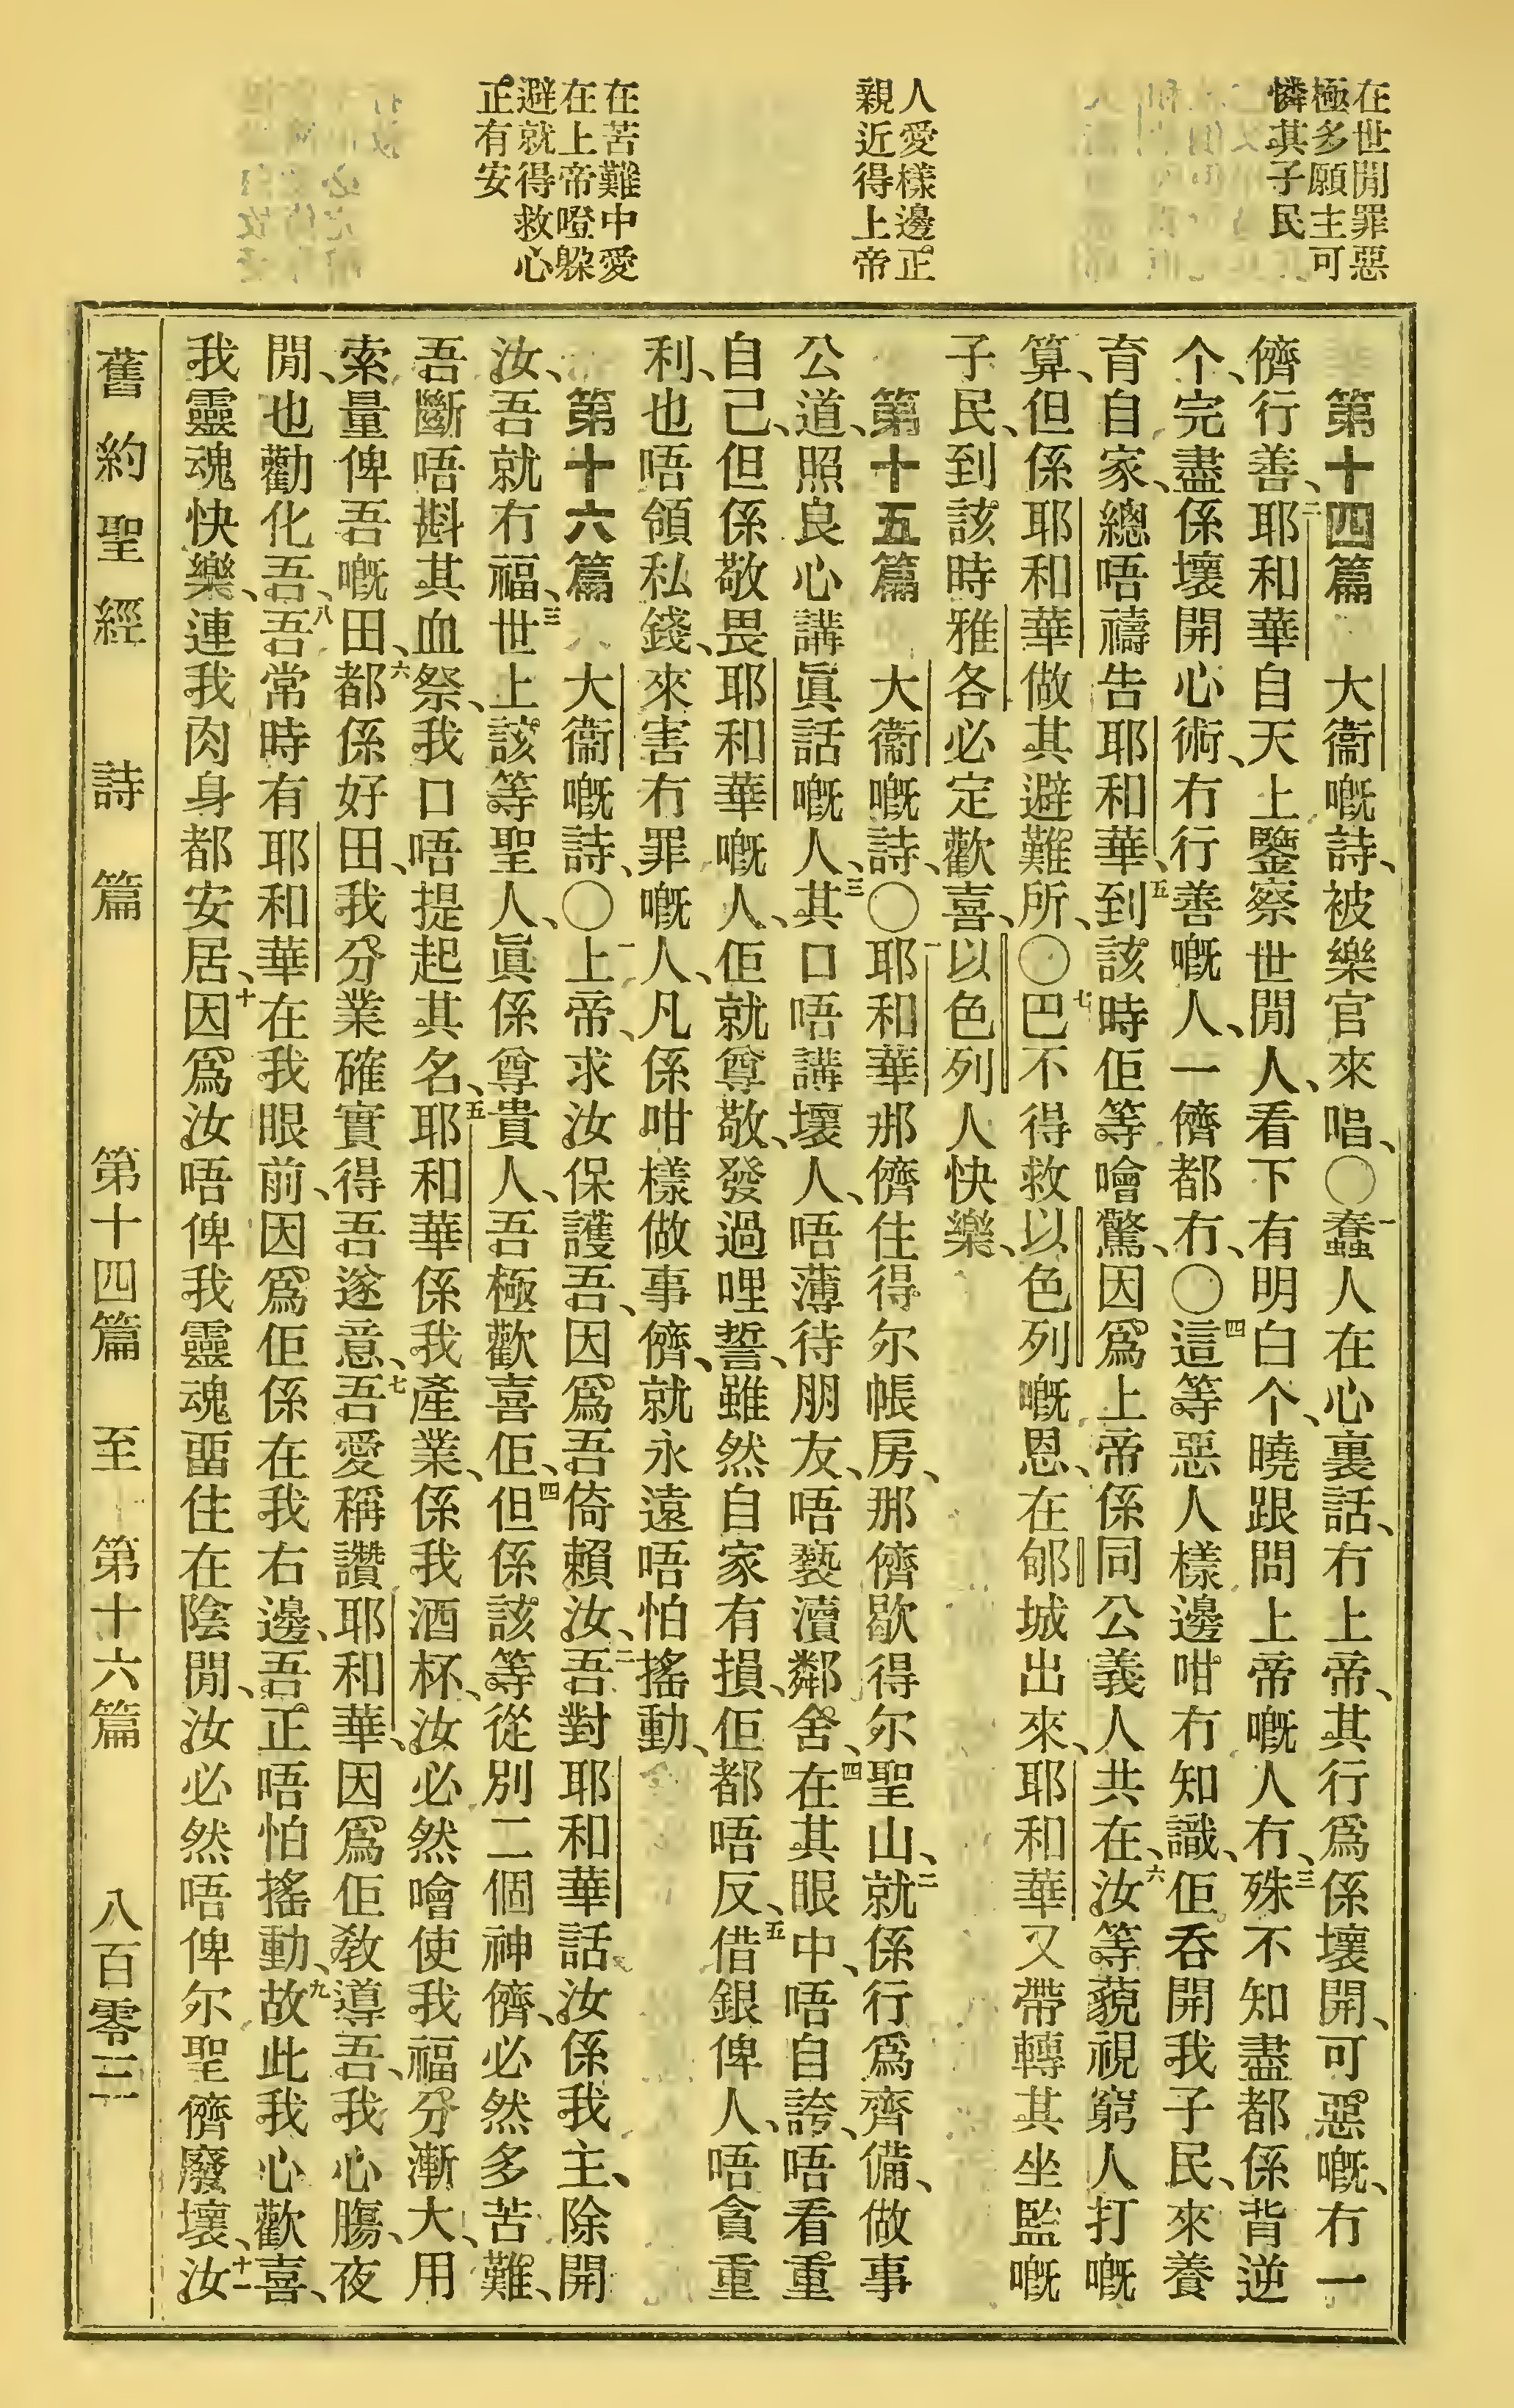 在世間罪惡
極多願主可
憐其子民
人愛樣邊正
親近得上帝
在苦難中愛
在上帝嶝躲
避就得救心
正有安
第十四篇 大衞嘅詩、被樂官來唱、〇一蠢人在心裏話、冇上帝、其行爲係壞開、可惡嘅、冇一
儕行善、二耶和華自天上鑒察世間人、看下有明白个、曉跟問上帝嘅人冇、三殊不知盡都係背逆
个、完盡係壞開心術、冇行善嘅人、一儕都冇、〇四這等惡人樣邊咁冇知識、佢吞開我子民、來養
育自家、總唔禱告耶和華、五到該時佢等噲驚、因爲上帝係同公義人共在、六汝等藐視窮人打嘅
算、但係耶和華做其避難所、〇七巴不得救以色列嘅恩、在郇城出來、耶和華又帶轉其坐監嘅
子民、到該時雅各必定歡喜、以色列人快樂、
第十五篇 大衞嘅詩、〇一耶和華那儕住得尔帳房、那儕歇得尔聖山、二就係行爲齊備、做事
公道、照良心講眞話嘅人、三其口唔講壞人、唔薄待朋友、唔褻瀆鄰舍、四在其眼中、唔自誇、唔看重
自己、但係敬畏耶和華嘅人、佢就尊敬、發過哩誓、雖然自家有損、佢都唔反、五借銀俾人、唔貪重
利、也唔領私錢、來害冇罪嘅人、凡係咁樣做事儕、就永遠唔怕搖動、
第十六篇 大衞嘅詩、〇一上帝、求汝保護吾、因爲吾倚賴汝、二吾對耶和華話、汝係我主、除開
汝、吾就冇福、三世上該等聖人、眞係尊貴人、吾極歡喜佢、四但係該等從別二個神儕、必然多苦難、
吾斷唔斟其血祭、我口唔提起其名、五耶和華係我產業、係我酒杯、汝必然噲使我福分漸大、用
索量俾吾嘅田、六都係好田、我分業確實得吾遂意、七吾愛稱讚耶和華、因爲佢教導吾、我心腸、夜
間、也勸化吾、八吾常時有耶和華在我眼前、因爲佢係在我右邊、吾正唔怕搖動、九故此我心歡喜、
我靈魂快樂、連我肉身都安居、十因爲汝唔俾我靈魂畱住在陰間、汝必然唔俾尔聖儕廢壞、十一汝
舊約聖經 詩篇 第十四篇 至 第十六篇 八百零三